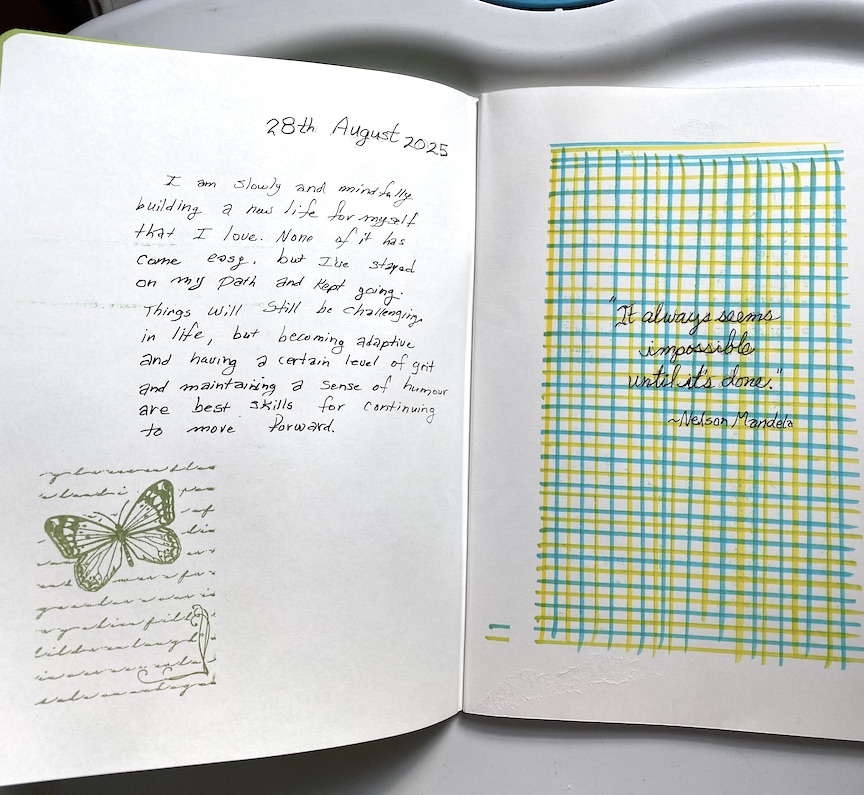 28th August 2025
I am slowly and mindfully
building a new life for myself
that I love. None of it has
come easy, but I've stayed
on my path and kept going.
Things will still be challenging
in life, but becoming adaptive
and having a certain level of grit
and maintaining a sense of humour
are best skills for continuing
to move forward.
"It always seems
impossible
until it's done."
~Nelson Mandela